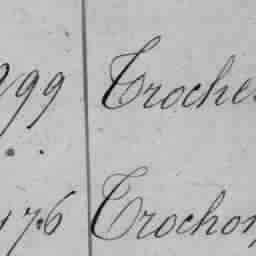 299 Troche
176 Trochon